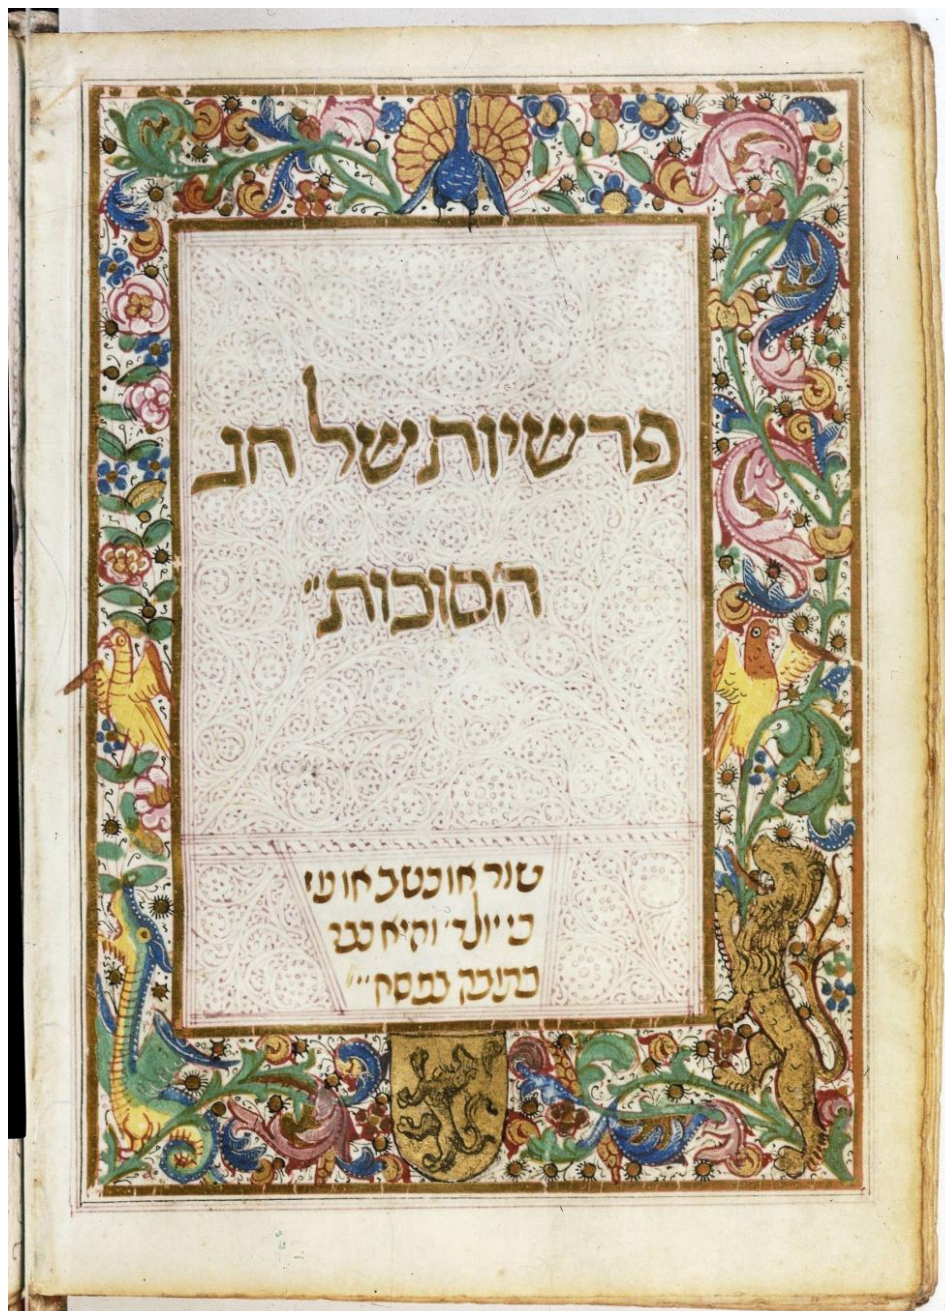 פרשיות של חג
הסוכות״
שור או כשב או עז
כי יולד׳ והיא כבר
כתובה בפסח׳׳׳